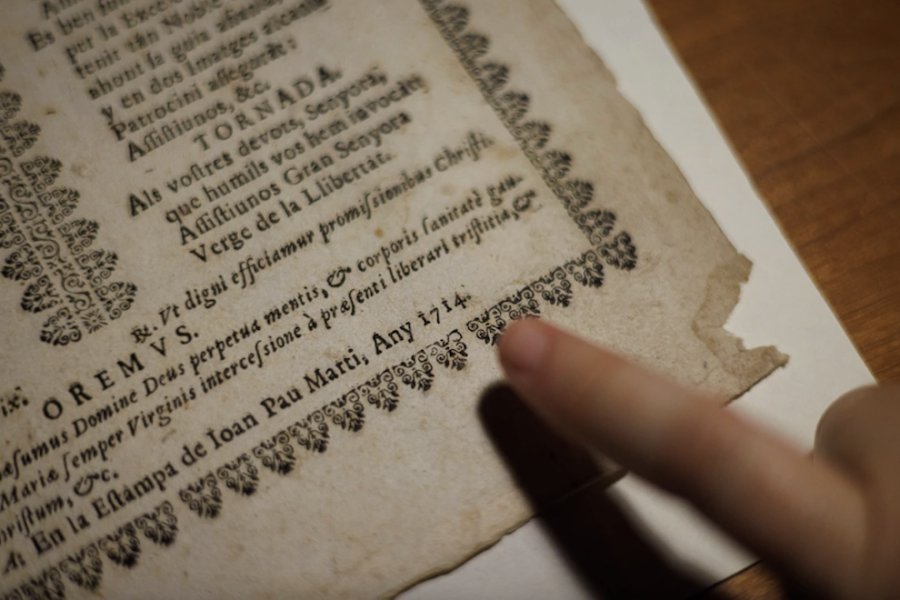 Es ben
per la
tenir tan Noble
ahont la guia
y en dos Imatges
Patrocini aſſegurat:
Aſſiſtiunos, &c.
TORNADA.
Als voſtres devots, Senyora,
que humils vos hem invocàt,
Aſſiſtiunos Gran Senyora
Verge de la Llibertàt.
℟. Vt digni efficiamur promiſſionibus Chriſti.
OREMVS.
Domine Deus perpetua mentis, & corporis ſanitatè gau-
Mariæ ſemper Virginis interceſſione à præſenti liberari triſtitia, &
&c.
En la Eſtampa de Ioan Pau Marti, Any 1714.